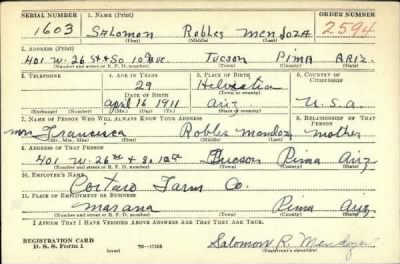 SERIAL NUMBER 1. NAME (Print) ORDER NUMBER
1603 SALOMON Robles MENDOZA 2594
(First) (Middle) (Last)
2. ADDRESS (Print)
401 W. 26 St & So 10th AVE. Tucson PIMA ARIZ.
(Number and street or R. F. D. number) (Town) (County) (State)
3. TELEPHONE 4. AGE IN YEARS 5. PLACE OF BIRTH 6. COUNTRY OF CITIZENSHIP
29 Helvetia
DATE OF BIRTH (Town or county)
April 16 1911 Ariz. U.S.A.
(Exchange) (Number) (Mo.) (Day) (Yr.) (State or country)
7. NAME OF PERSON WHO WILL ALWAYS KNOW YOUR ADDRESS 8. RELATIONSHIP OF THAT PERSON
Mrs Francisca Robles Mendoza mother
(Mr., Mrs., Miss) (First) (Middle) (Last)
9. ADDRESS OF THAT PERSON
401 W. 26th & So. 10th Tucson Pima Ariz
(Number and street or R. F. D. number) (Town) (County) (State)
10. EMPLOYER'S NAME
Cortaro Farm Co.
11. PLACE OF EMPLOYMENT OR BUSINESS
Marana Pima Ariz.
(Number and street or R. F. D. number) (Town) (County) (State)
I AFFIRM THAT I HAVE VERIFIED ABOVE ANSWERS AND THAT THEY ARE TRUE.
REGISTRATION CARD
D. S. S. Form 1 (over) Salomon R. Mendoza
(Registrant's signature)